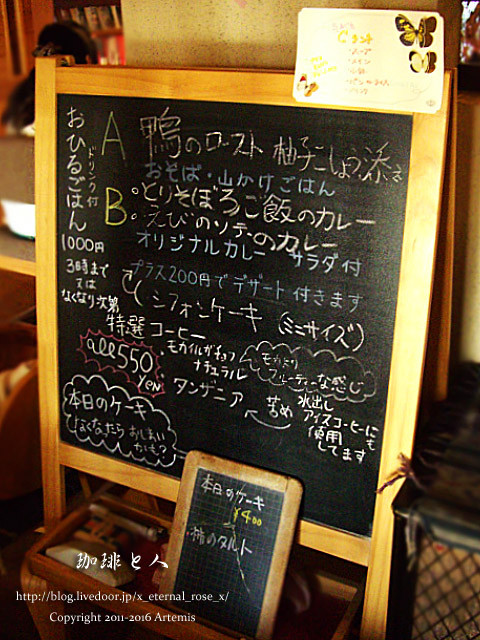 Cランチ
おひるごはん
ドリンク付
1000円
3時まで
又は
なくなり次第
A
鴨のロースト 柚子こしょう添え
おそば・山かけごはん
B
とりそぼろご飯のカレー
えびのソテーのカレー
オリジナルカレー サラダ付
プラス200円でデザート付きます
シフォンケーキ (ミニサイズ)
特選コーヒー
all550yen
ナチュラル
タンザニア
フルーティーな感じ
苦め
水出し
アイスコーヒーにも
使用
してます
本日のケーキ
なくなったら おしまい
かも?
本日のケーキ
¥400
・柿のタルト
珈琲と人
http://blog.livedoor.jp/x_eternal_rose_x/
Copyright 2011-2016 Artemis